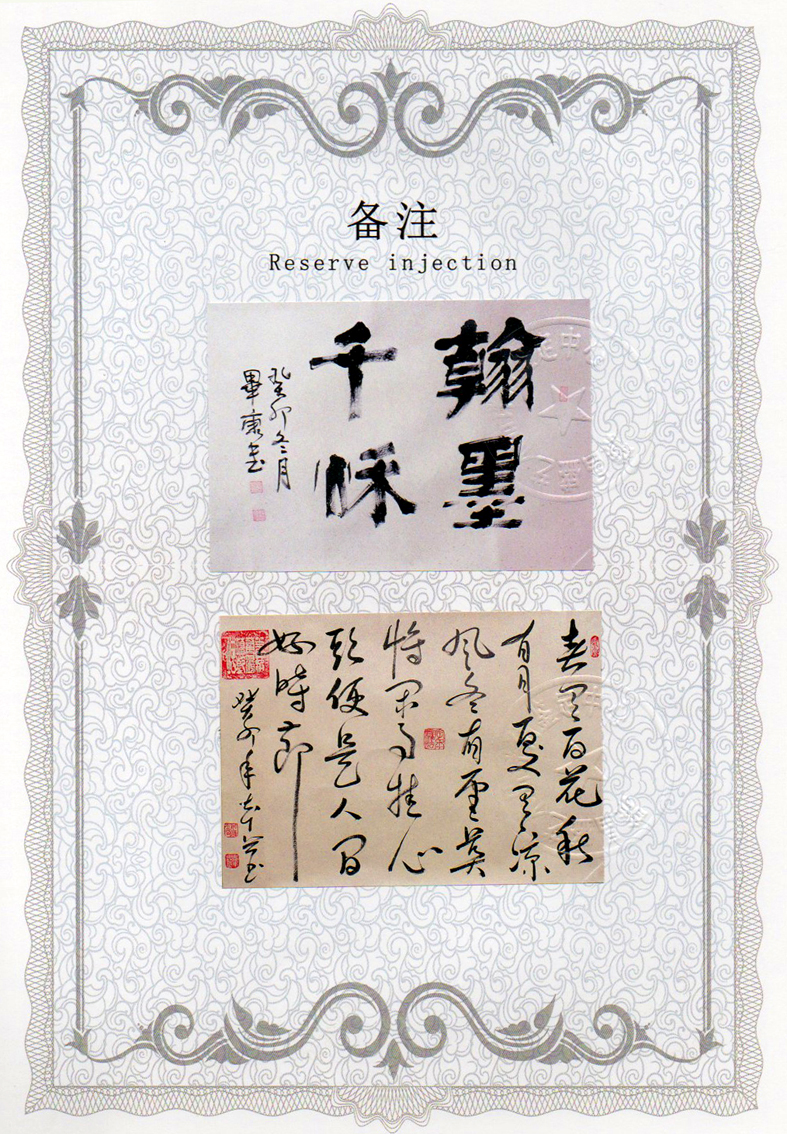 备注
Reserve injection
翰墨
千秋
癸卯冬月
畢康書
春有百花秋
有月夏有凉
风冬有雪莫
将闲事挂心
头便是人间
好时节
癸卯年